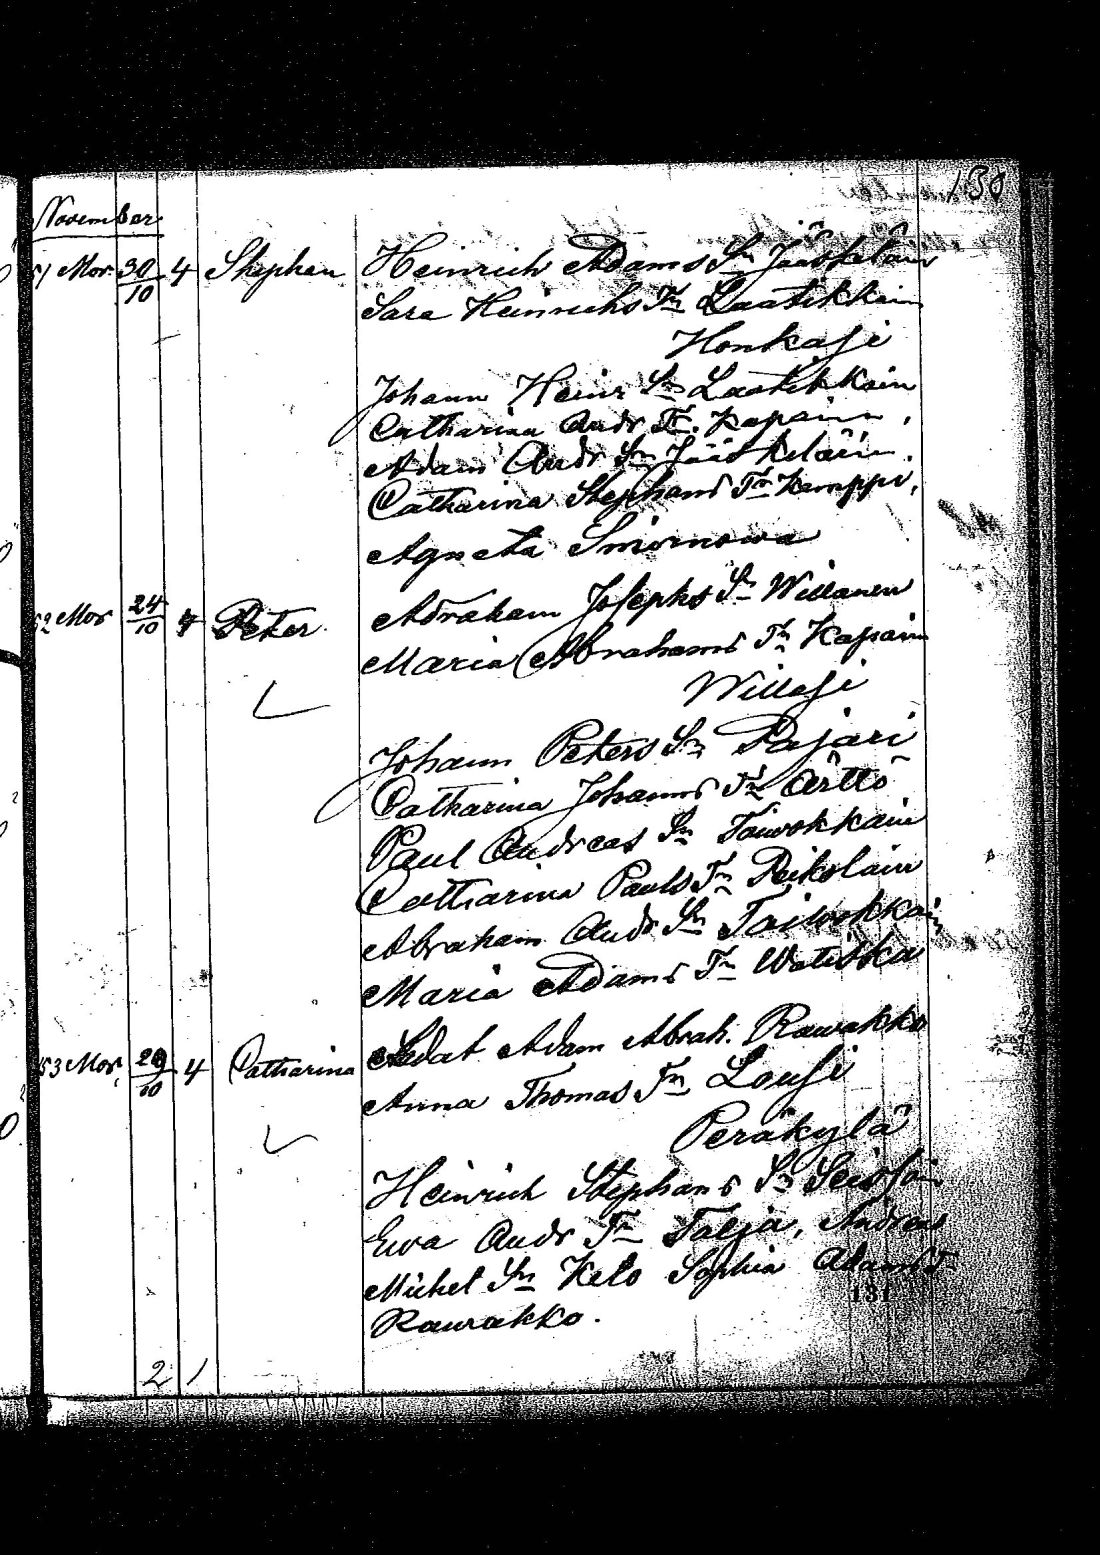 130
November
51 Mor 30/10 4 Stephan Heinrich Adams Sn Jääskeläin
Sara Heinrichs Tr Laatikkain
Honkasi
Johann Heinr Sn Laatikkain
Catharina Andr Tr. Kapain,
Adam Andr Sn Jääskeläin.
Catharina Stephans Tr Kemppi,
Agneta Smirnowa
52 Mor 24/10 4 Peter. Abraham Josephs Sn Willanen
Maria Abrahams Tr Kapain
Willasi
Johann Peters Sn Pajari
Catharina Johanns Tr Örttö
Paul Andreas Sn Taiwokkain
Catharina Pauls Tr Peikolain
Abraham Andr Sn Taiwokkain
Maria Adams Tr Watiska
53 Mor, 29/10 4 Catharina Soldat Adam Abrah. Rawakko
Anna Thomas Tr Lousi
Peräkylä
Heinrich Stephans Sn
Ewa Andr Tr Talja, Andreas
Michel Sn Keto Sophia Adams T
Raurakko.
131
2 1